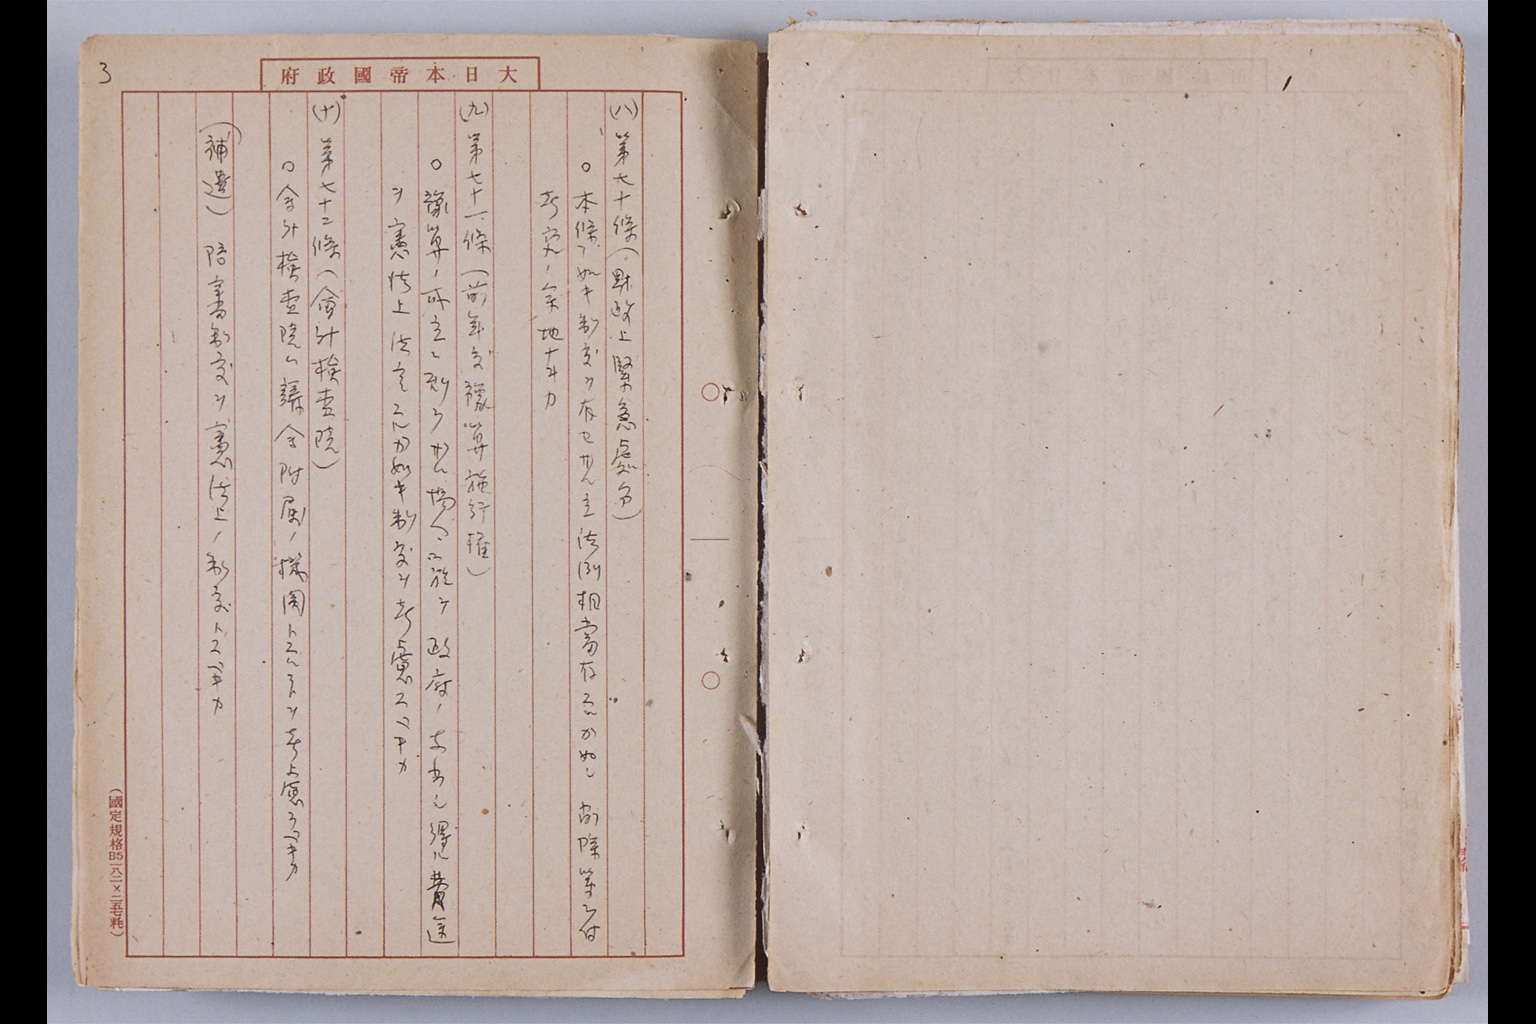 3
大日本帝國政府
(八)第七十條(財政上緊急處分)
○本條ノ如キ制度ヲ存セサル立法例相當存スルカ如シ 削除等ニ付
考究ノ余地ナキカ
(九)第七十一條(前年度豫算施行權)
○豫算ノ成立ニ到ラサル場合ニ於ケ政府ノ支出シ得ル費途
ヲ憲法上法定スルカ如キ制度ヲ考慮スヘキカ
(十)第七十二條(會計檢査院)
○会計檢査院ハ議会附屬ノ機関トスルコトヲ考慮スヘキカ
(補遺) 陪審制度ヲ憲法上ノ制度トスヘキカ
(國定規格B5 一八二×二五七粍)